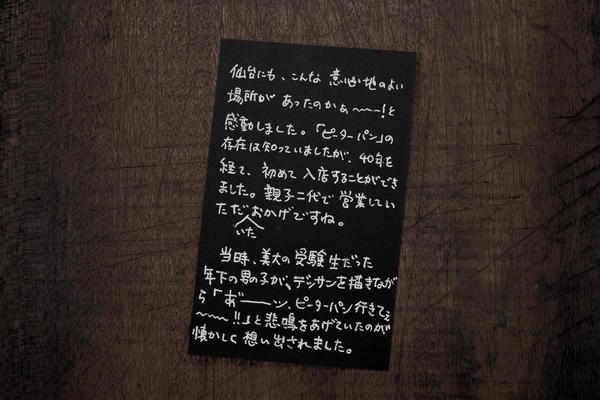 仙台にも、こんな 意心地のよい
場所が あったのかぁ〜〜〜!と
感動しました。「ピーターパン」の
存在は知っていましたが、40年を
経て、初めて 入店することができ
ました。親子二代で 営業してい
ただおかげですね。
いた
当時、美大の 受験生だった
年下の男の子が、デッサンを描きなが
ら「あ゛ーーーン、ピーターパン行きてぇ
〜〜〜!!」と悲鳴をあげていたのが
懐かしく 想い出されました。